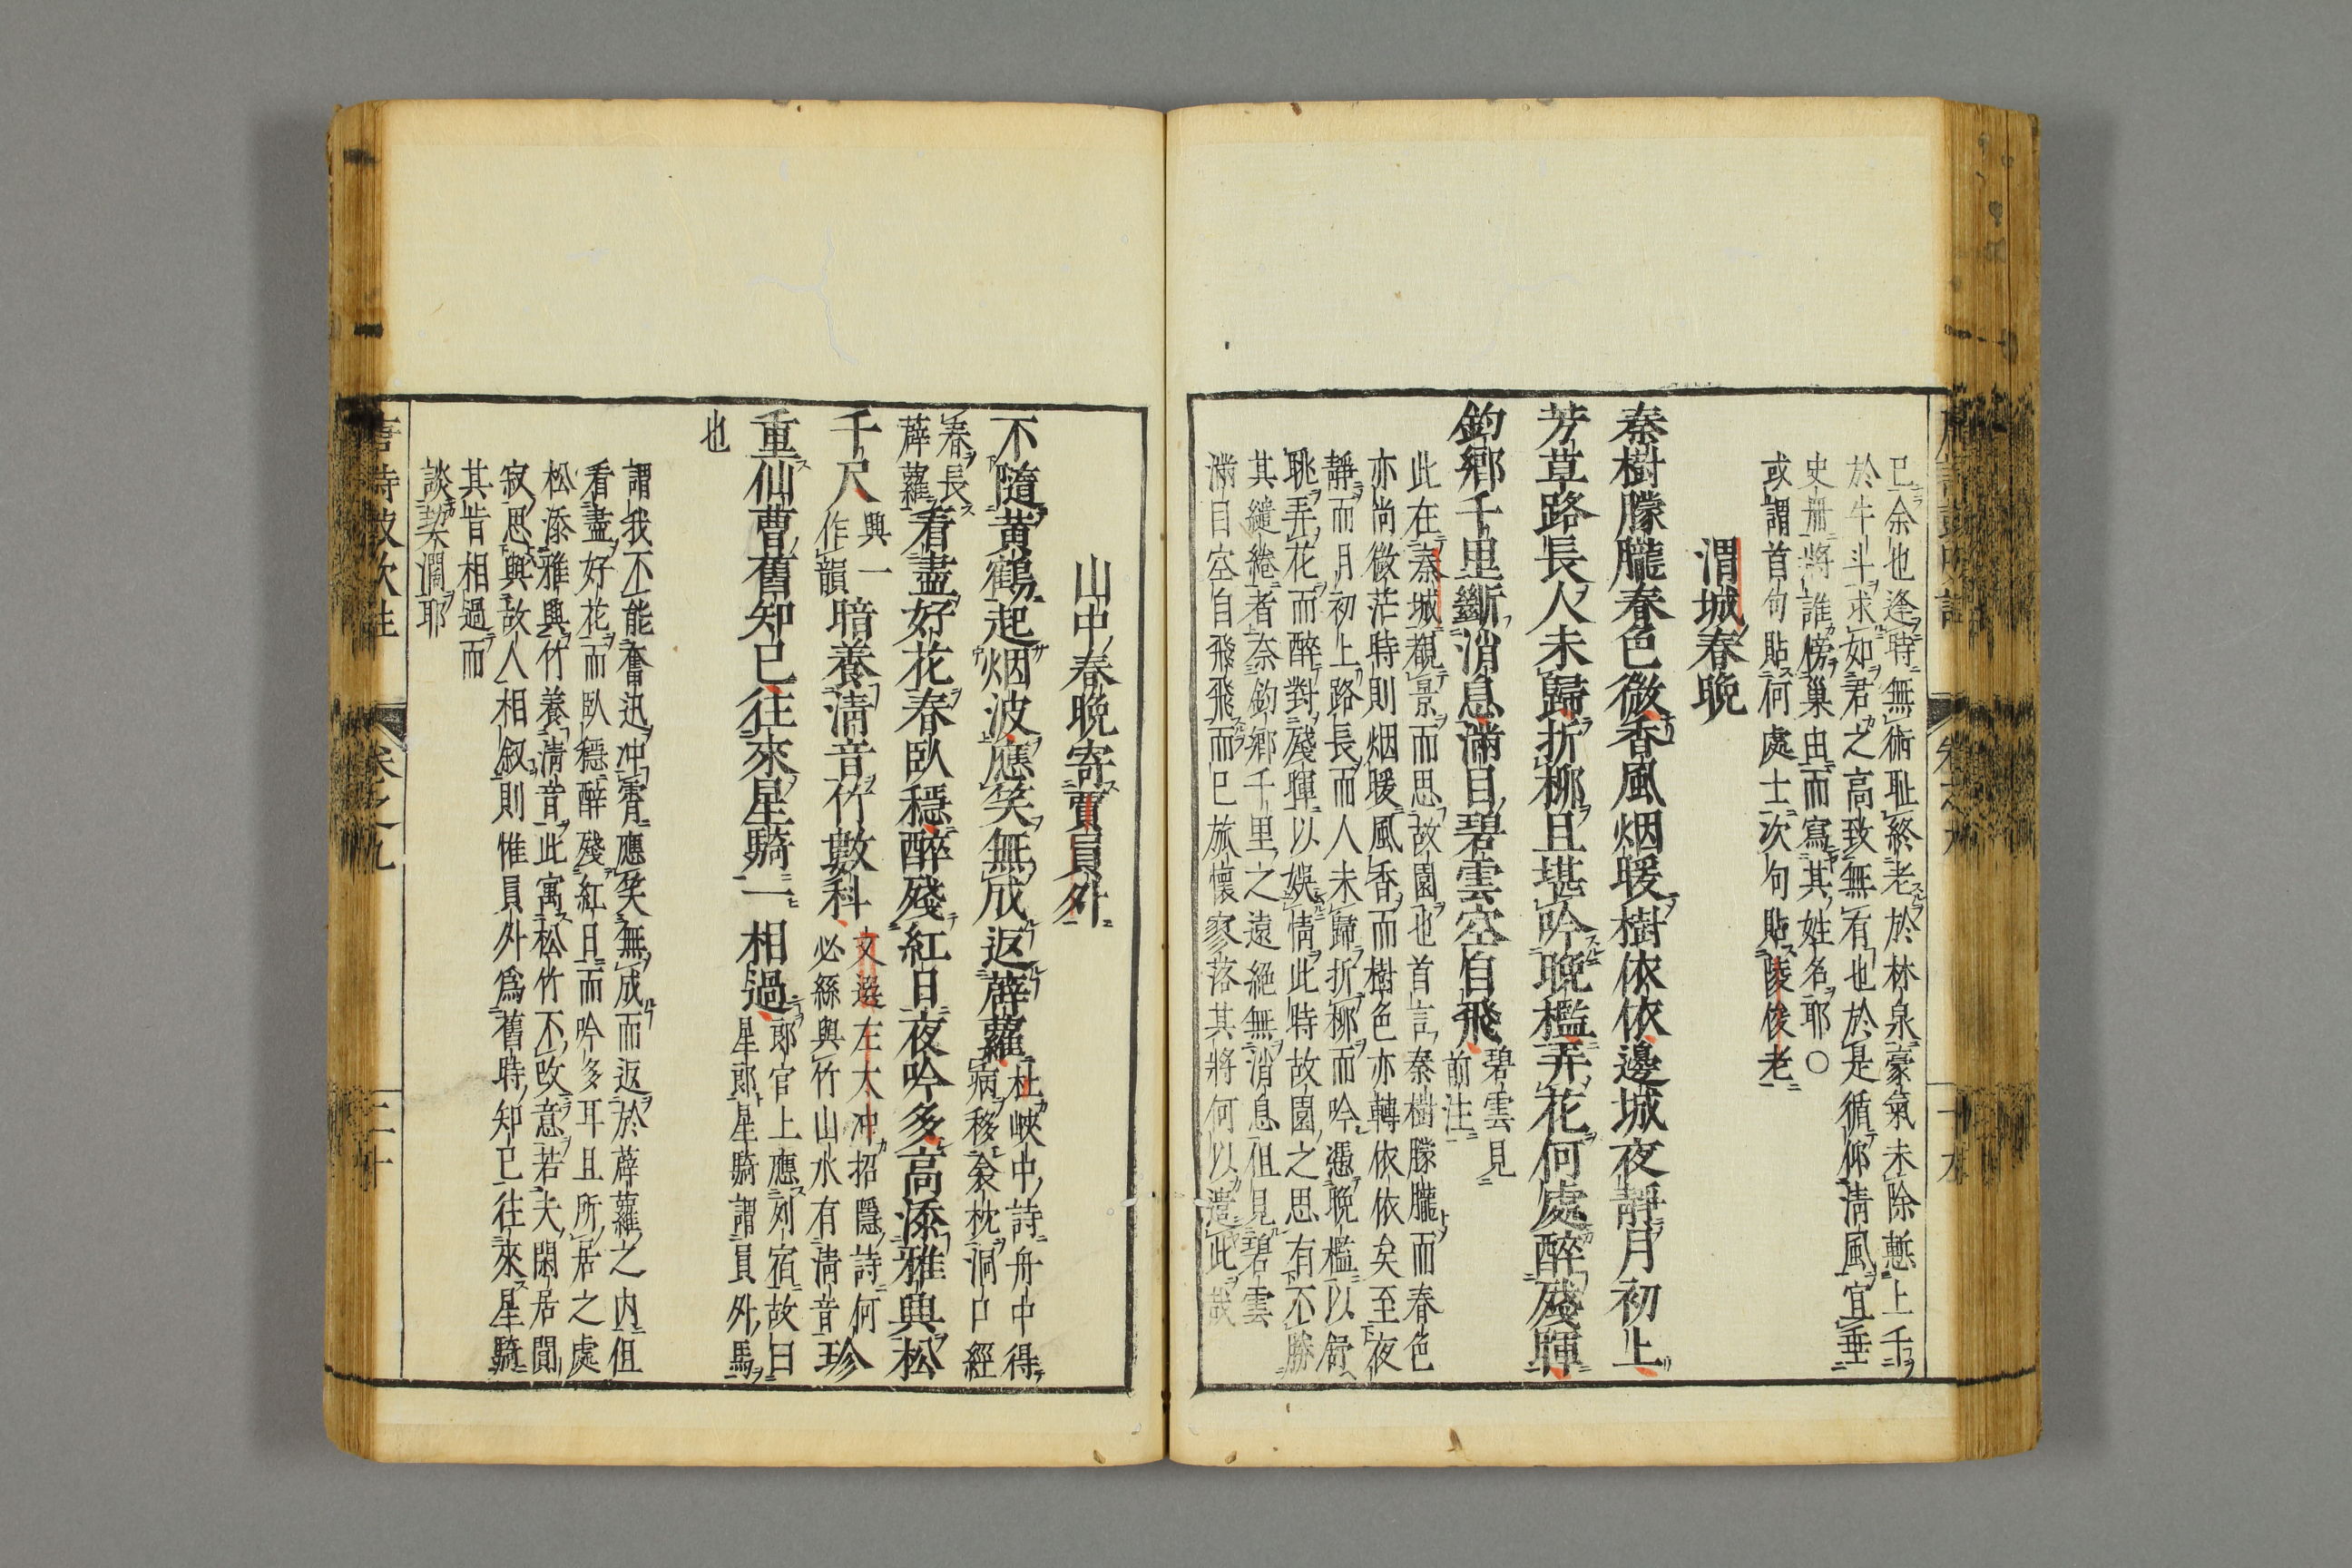 已余也逢時無術耻終老於林泉豪氣未除慙上千
於牛斗求如君之高致無有也於是循仰清風宜垂
史冊將誰傍巢由而寫其姓名耶〇
或謂首句貼何處士次句貼陵俊老
渭城春晩
秦樹朦朧春色微香風烟暖樹依依邊城夜靜月初上
芳草路長人未歸折柳且堪吟晩檻弄花何處醉殘暉
釣鄉千里斷消息滿目碧雲空自飛
碧雲見
前注
此在秦城覩景而思故園也首言秦樹朦朧而春色
亦尚微茫時則烟暖風香而樹色亦轉依依矣至夜
靜而月初上路長而人未歸折柳而吟憑晩檻以舒
眺弄花而醉對殘暉以娛情此時故園之思有不勝
其繾綣者奈釣鄉千里之遠絕無消息但見碧雲
滿目空自飛飛而已旅懷寥落其將何以遣此哉
山中春晩寄賈員外
不隨黄鶴起烟波應笑無成返薜蘿
杜峽中詩舟中得
病移衾枕洞口經
春長
薜蘿
看盡好花春臥穩醉殘紅日夜吟多高添雅興松
千尺
興一
作韻
暗養清音竹數科
文選左太冲招隱詩何
必絲與竹山水有清音
珍
重仙曹舊知己往來星騎一相過
郎官上應列宿故曰
星郎星騎謂員外馬
也
謂我不能奮迅冲霄應笑無成而返於薜蘿之内但
看盡好花而臥穩醉殘紅日而吟多耳且所居之處
松添雅興竹養清音此寓松竹不改意若夫閑居閴
寂思與故人相叙則惟員外為舊時知已往來星騎
其肯相過而
談契濶耶
唐詩鼓吹註
卷之九
三十